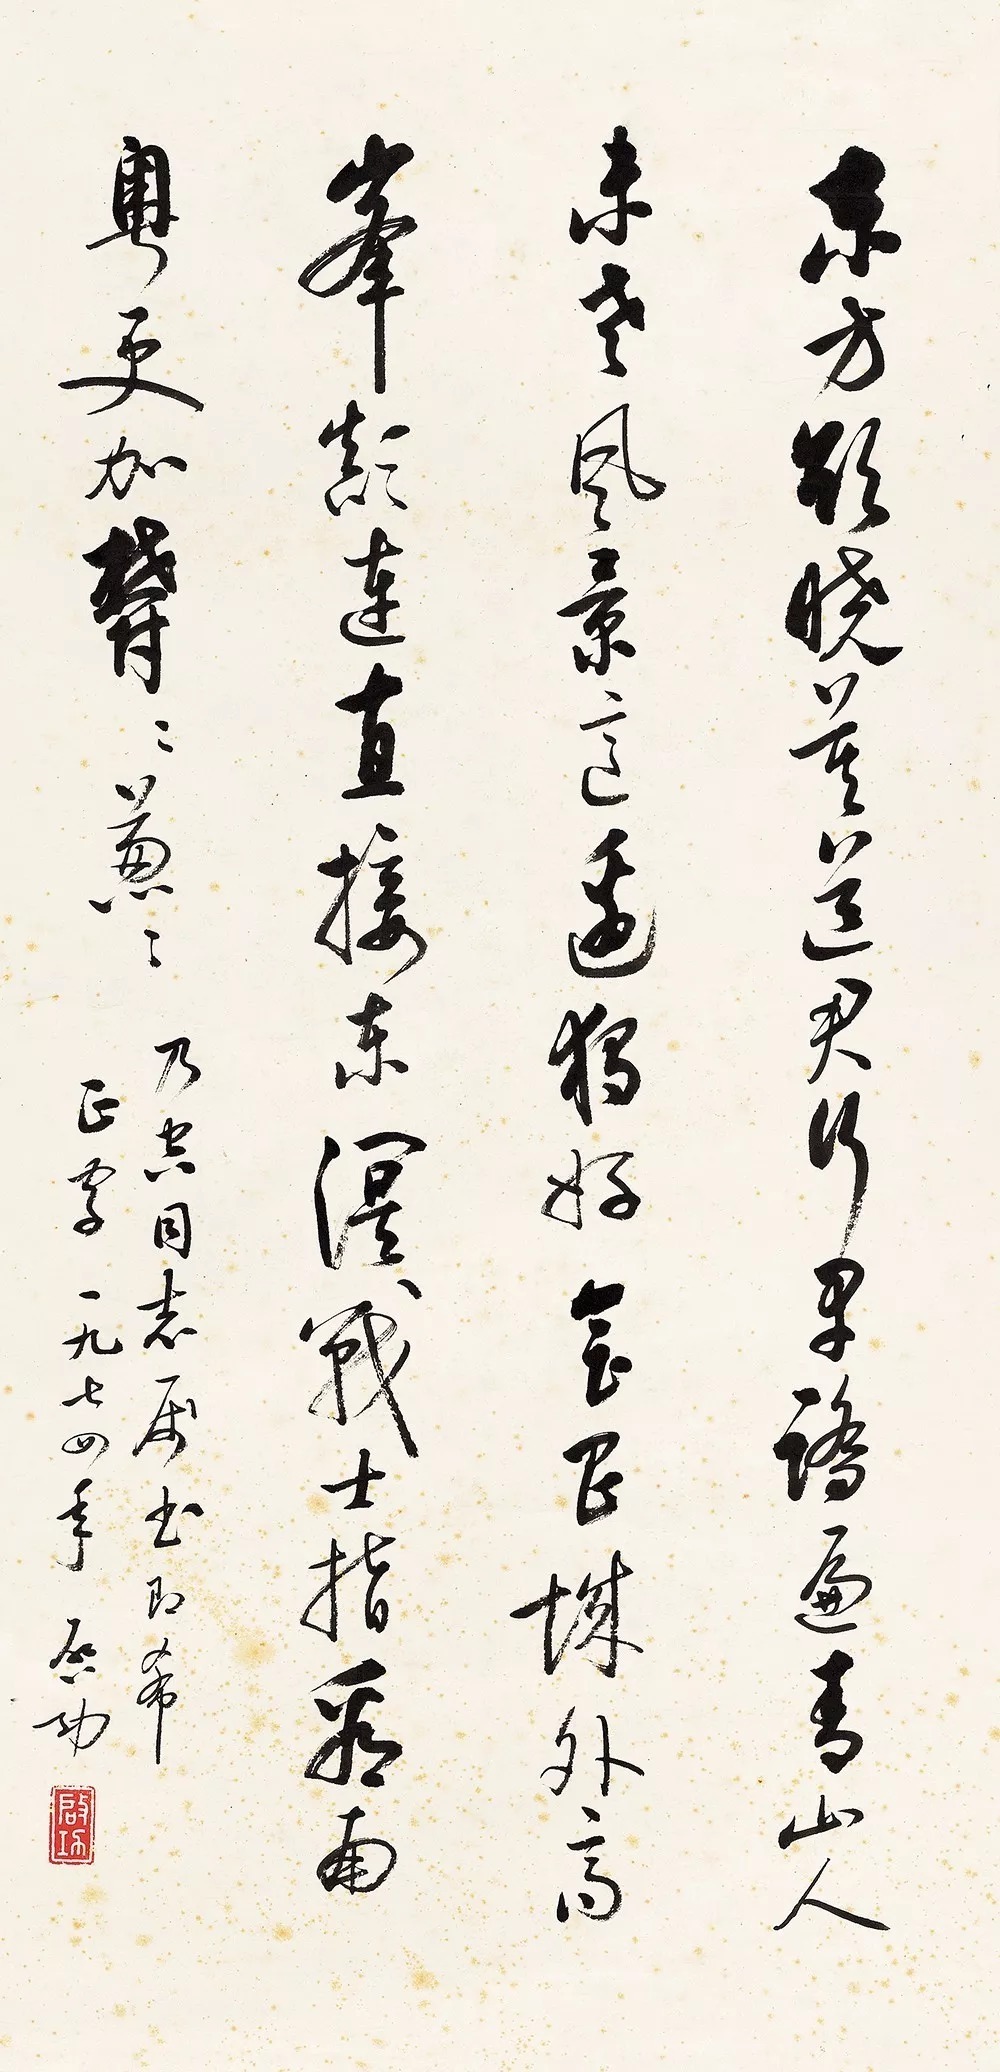 东方欲晓莫道君行早踏遍青山人
未老风景這邊獨好會昌城外高
峯颠連直接东溟戰士指看南
粤更加鬱〻葱〻
乃同志属书即希
正字 一九七四年 启功
启功